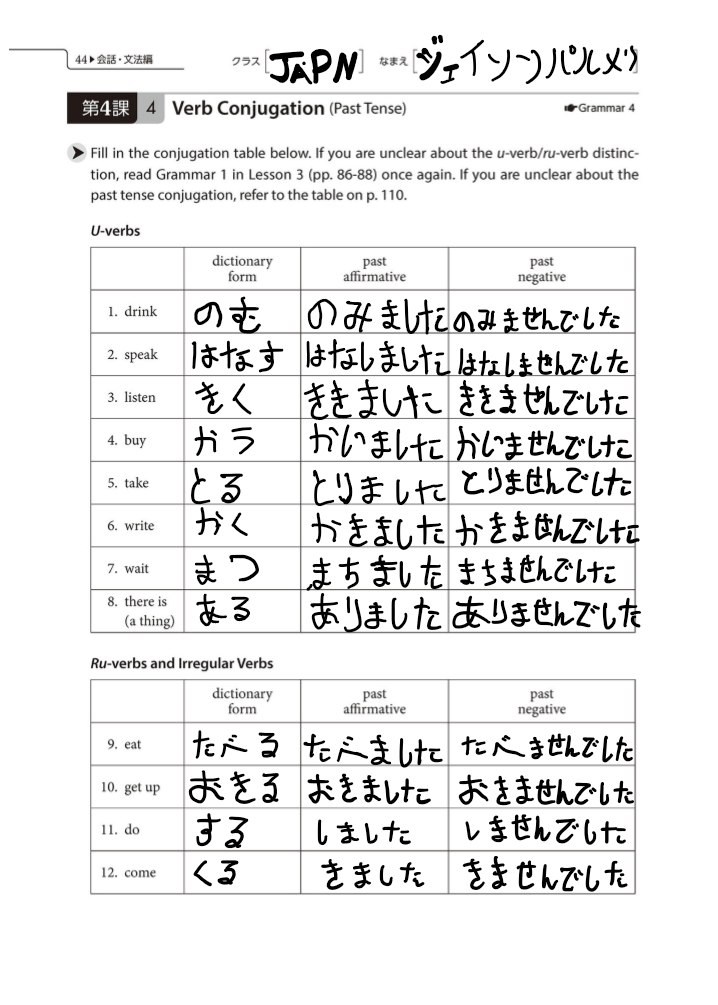 44▶会話・文法編 クラス [JAPN] なまえ [ジェイソンパルメリ]
第4課 4 Verb Conjugation (Past Tense) ☛Grammar 4
➤ Fill in the conjugation table below. If you are unclear about the u-verb/ru-verb distinc-
tion, read Grammar 1 in Lesson 3 (pp. 86-88) once again. If you are unclear about the
past tense conjugation, refer to the table on p. 110.
U-verbs
dictionary form past affirmative past negative
1. drink のむ のみました のみませんでした
2. speak はなす はなしました はなしませんでした
3. listen きく ききました ききませんでした
4. buy かう かいました かいませんでした
5. take とる とりました とりませんでした
6. write かく かきました かきませんでした
7. wait まつ まちました まちませんでした
8. there is (a thing) ある ありました ありませんでした
Ru-verbs and Irregular Verbs
dictionary form past affirmative past negative
9. eat たべる たべました たべませんでした
10. get up おきる おきました おきませんでした
11. do する しました しませんでした
12. come くる きました きませんでした